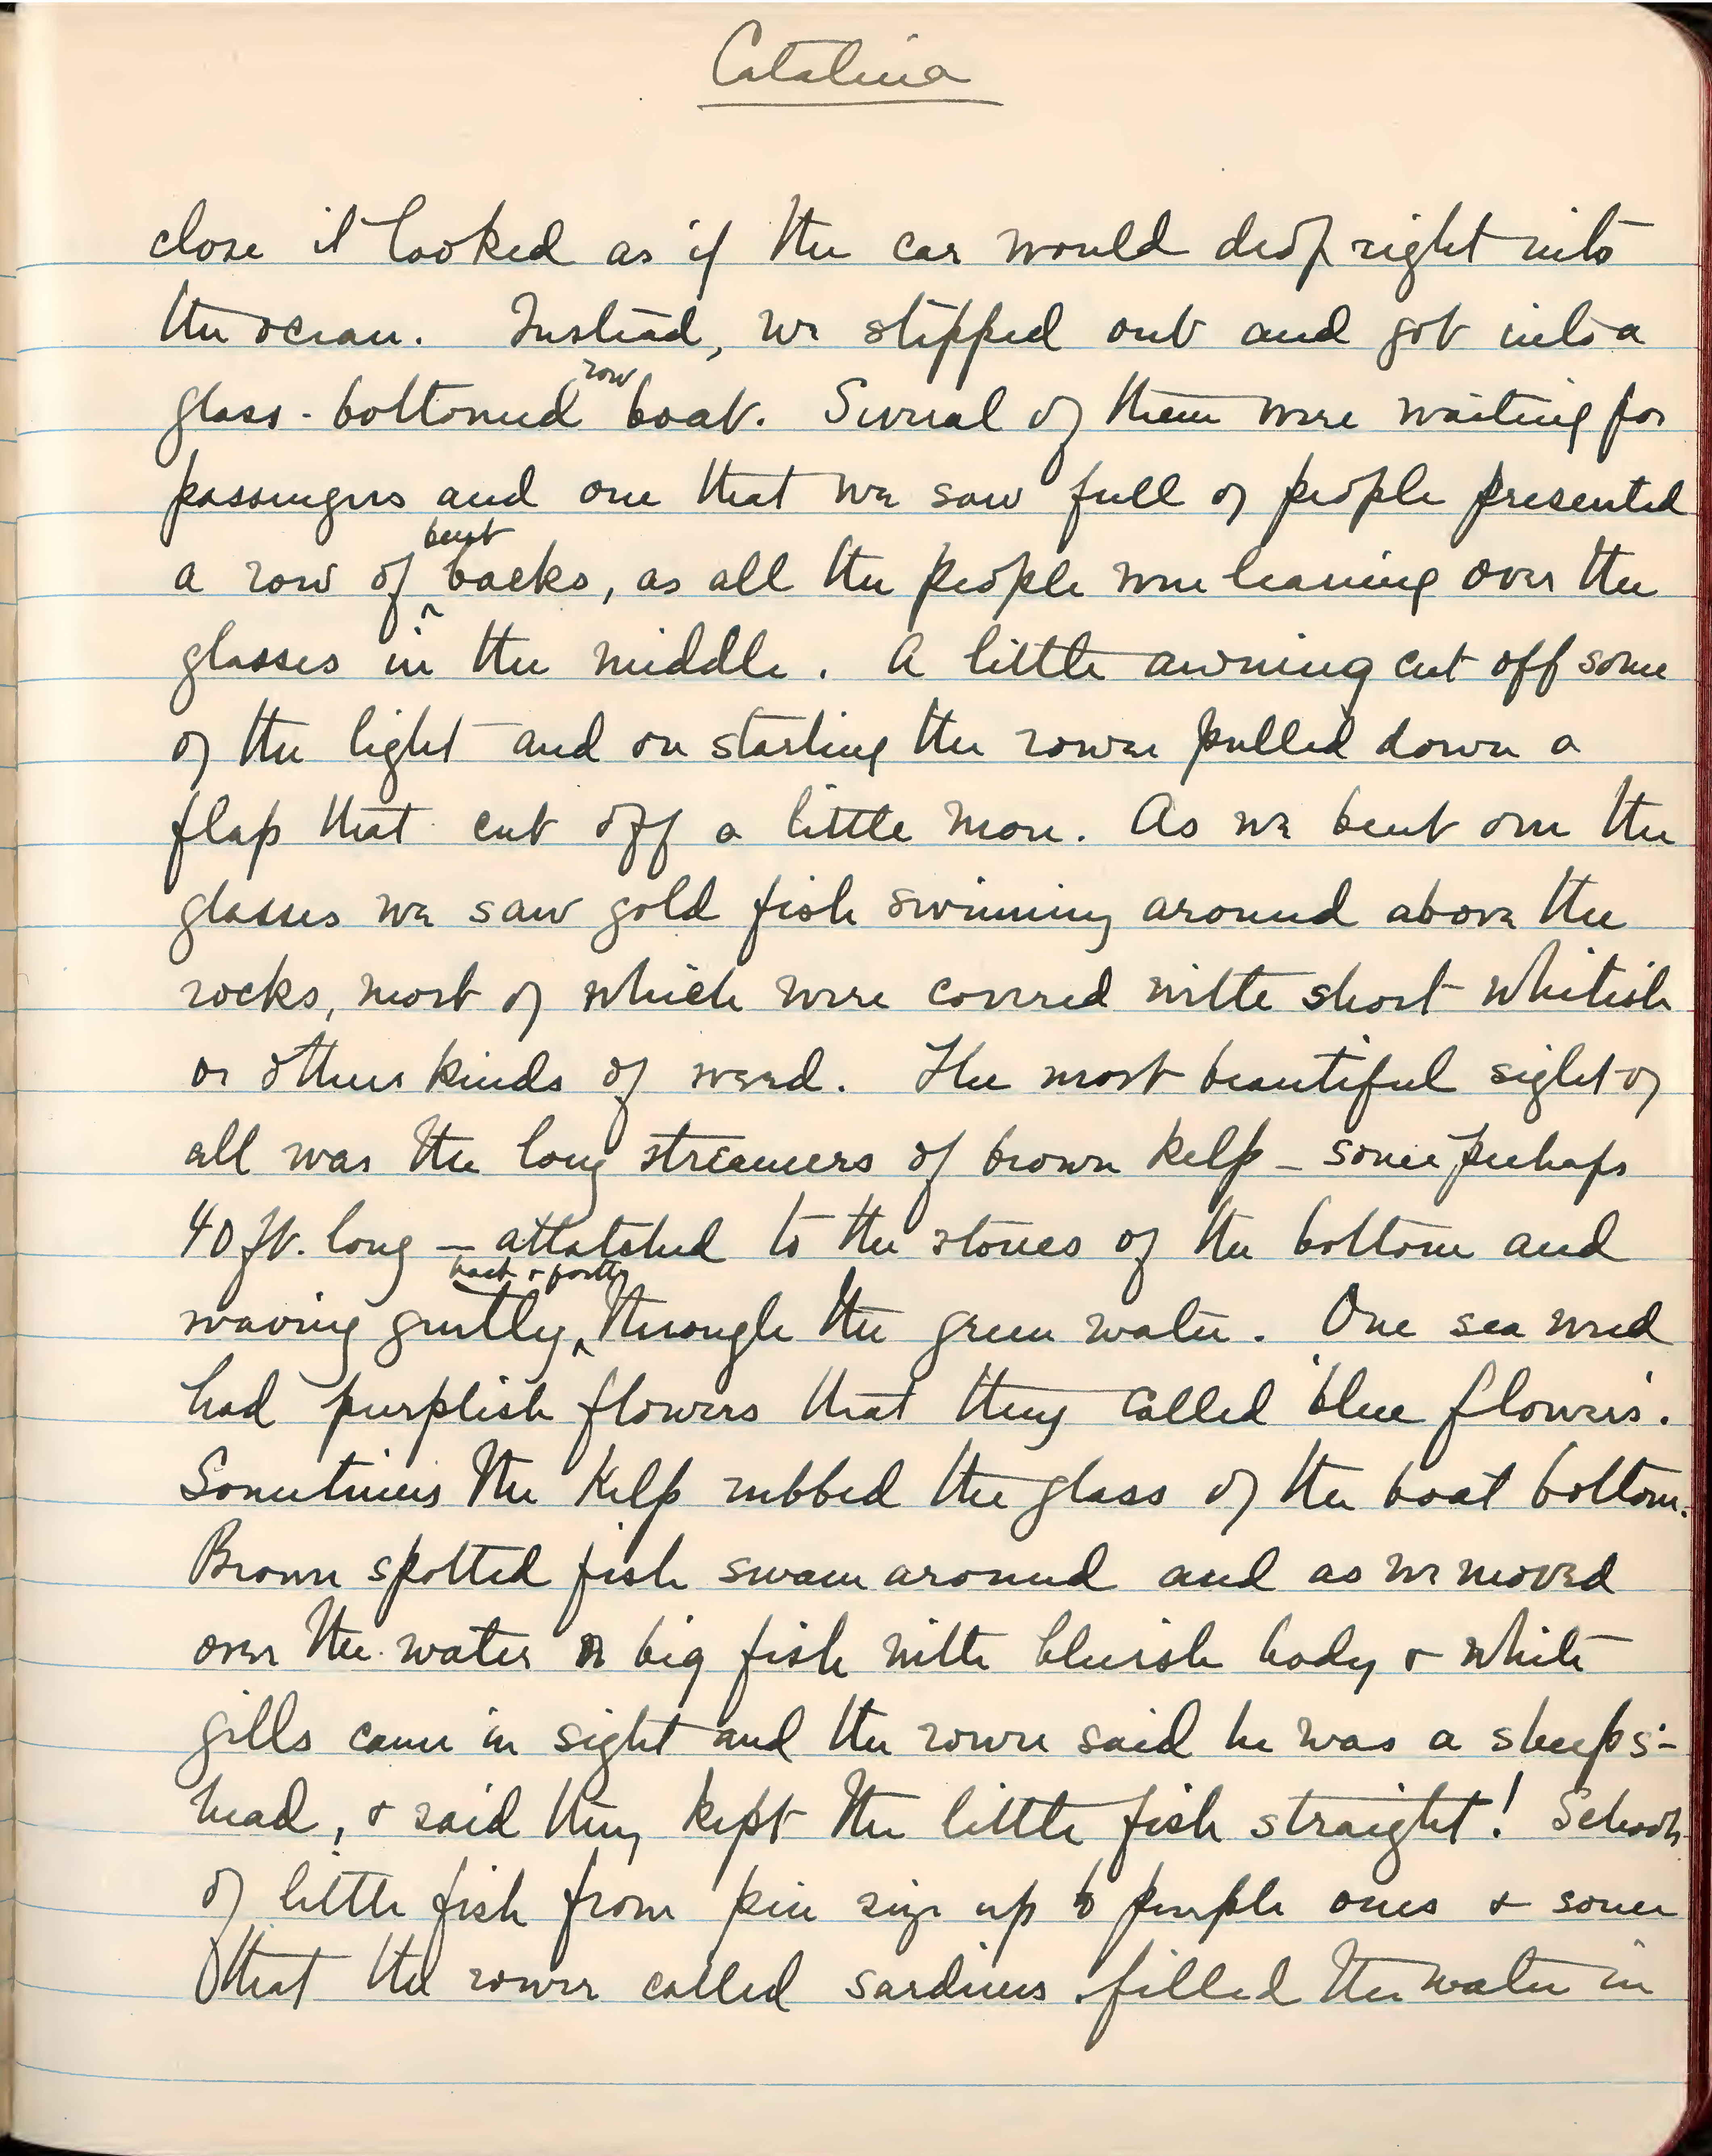 Catalina
close it looked as if the car would drop right into
the ocean. Instead, we stepped out and got into a
row
glass-bottomed boat. Several of them were waiting for
passengers and one that we saw full of people presented
bent
a row of ^ backs, as all the people were leaning over the
glasses in the middle. A little awning cut off some
of the light and on starting the rower pulled down a
flap that cut off a little more. As we bent over the
glasses we saw gold fish swimming around above the
rocks, most of which were covered with short whitish
or other kinds of weed. The most beautiful sight of
all was the long streamers of brown kelp – some perhaps
40 ft. long – attatched to the stones of the bottom and
back & forth
waving gently ^ through the green water. One sea weed
had purplish flowers that they called 'blue flowers'.
Sometimes the kelp rubbed the glass of the boat bottom.
Brown spotted fish swam around and as we moved
over the water a big fish with bluish body & white
gills came in sight and the rower said he was a sheeps-
head, & said they kept the little fish straight! Schools
of little fish from pin size up to purple ones & some
that the rower called sardines filled the water in